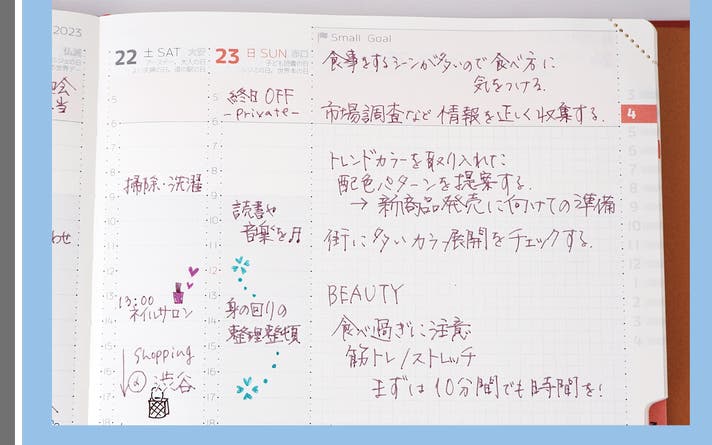 2023
仏滅
22 土 SAT 大安
アースデー、大人の日
5
掃除・洗濯
13:00
ネイルサロン
Shopping
渋谷
23 日 SUN 赤口
子ども読書の日
終日 OFF
-private-
読書や
音楽を♬
身の回りの
整理整頓
Small Goal
食事をするシーンが多いので食べ方に
気をつける.
市場調査など情報を正しく収集する.
トレンドカラーを取り入れた
配色パターンを提案する.
→ 新商品発売に向けての準備
街に多いカラー展開をチェックする.
BEAUTY
食べ過ぎに注意
筋トレ/ストレッチ
まずは10分間でも時間を!
3
4
5
6
7
8
9
10
11
12
1
2
3
4